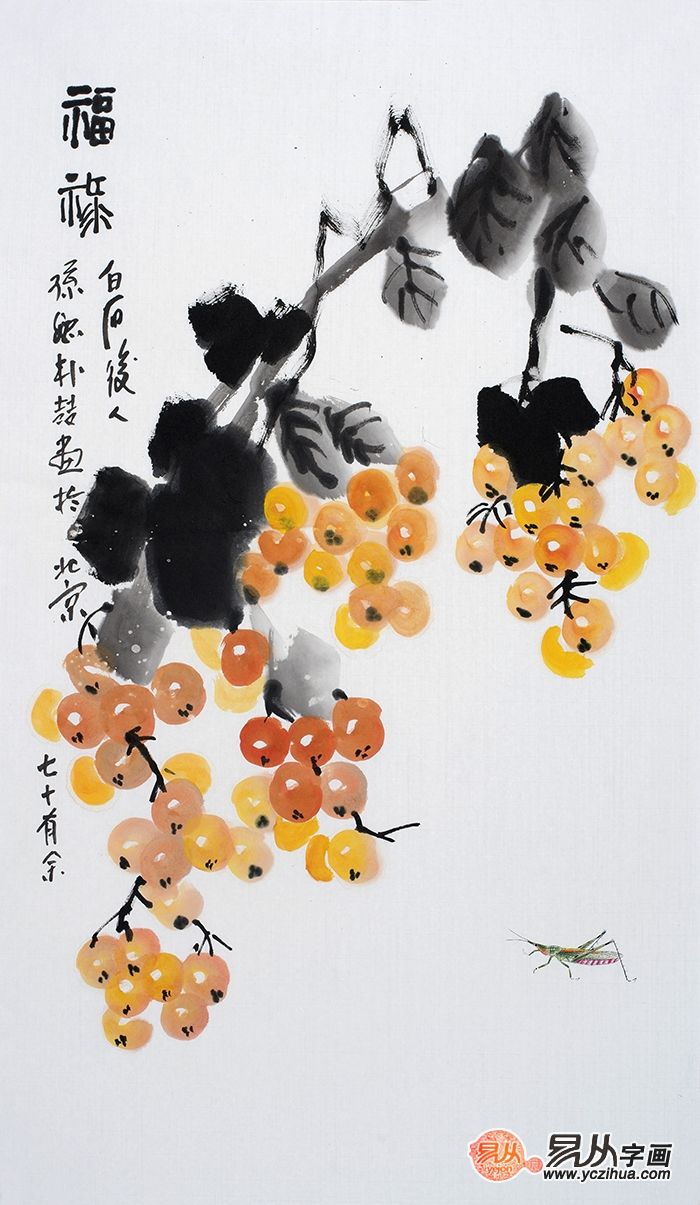 福禄
白石後人
孫媳朴喆画於北京
七十有余
易从字画
ycon
www.yczihua.com